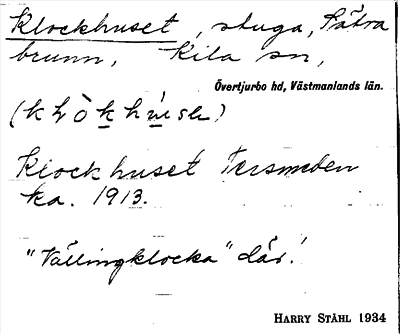 Klockhuset, stuga, Sätra
brunn, Kila sn,
Övertjurbo hd, Västmanlands län.
Klockhuset Tersmeden
ka. 1913.
"Vällingklocka" där!
HARRY STÅHL 1934